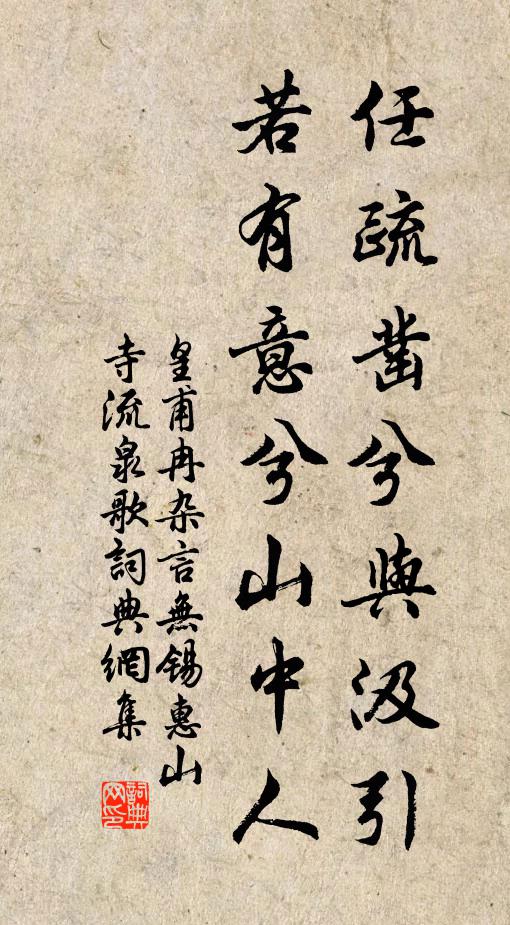 任疏凿兮與汲引
若有意兮山中人
皇甫冉杂言無锡惠山
寺流泉歌詞典網集
詞典
网印